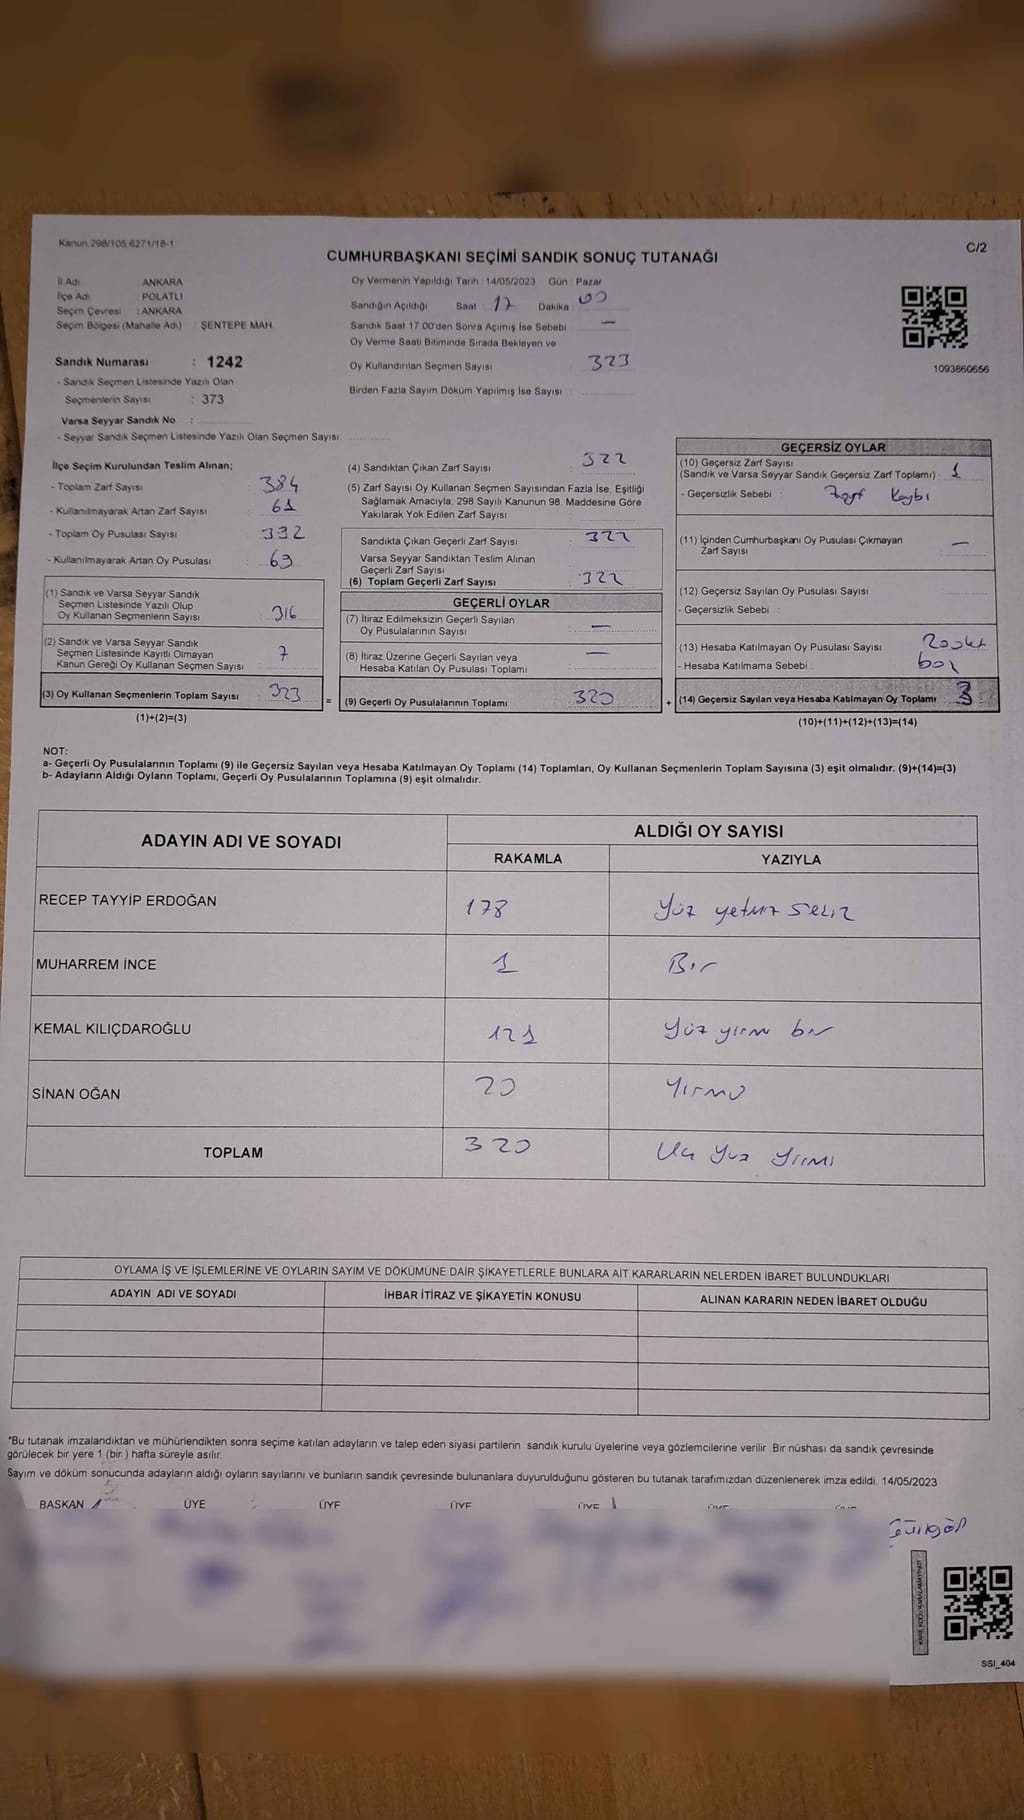 Kanun.298/105,6271/18-1
C/2
CUMHURBAŞKANI SEÇİMİ SANDIK SONUÇ TUTANAĞI
İl Adı : ANKARA
İlçe Adı : POLATLI
Seçim Çevresi : ANKARA
Seçim Bölgesi (Mahalle Adı) : ŞENTEPE MAH
Sandık Numarası : 1242
- Sandık Seçmen Listesinde Yazılı Olan
Seçmenlerin Sayısı : 373
Varsa Seyyar Sandık No :
- Seyyar Sandık Seçmen Listesinde Yazılı Olan Seçmen Sayısı
Oy Vermenin Yapıldığı Tarih : 14/05/2023 Gün : Pazar
Sandığın Açıldığı Saat : 17 Dakika : 00
Sandık Saat 17:00'den Sonra Açımış İse Sebebi : —
Oy Verme Saati Bitiminde Sırada Bekleyen ve
Oy Kullandırılan Seçmen Sayısı : 323
Birden Fazla Sayım Döküm Yapılmış İse Sayısı :
1093860656
İlçe Seçim Kurulundan Teslim Alınan;
- Toplam Zarf Sayısı : 384
- Kullanılmayarak Artan Zarf Sayısı : 61
- Toplam Oy Pusulası Sayısı : 392
- Kullanılmayarak Artan Oy Pusulası : 69
(1) Sandık ve Varsa Seyyar Sandık
Seçmen Listesinde Yazılı Olup
Oy Kullanan Seçmenlerin Sayısı : 316
(2) Sandık ve Varsa Seyyar Sandık
Seçmen Listesinde Kayıtlı Olmayan
Kanun Gereği Oy Kullanan Seçmen Sayısı : 7
(3) Oy Kullanan Seçmenlerin Toplam Sayısı : 323
(1)+(2)=(3)
=
(4) Sandıktan Çıkan Zarf Sayısı : 322
(5) Zarf Sayısı Oy Kullanan Seçmen Sayısından Fazla İse, Eşitliği
Sağlamak Amacıyla, 298 Sayılı Kanunun 98. Maddesine Göre
Yakılarak Yok Edilen Zarf Sayısı :
Sandıkta Çıkan Geçerli Zarf Sayısı : 322
Varsa Seyyar Sandıktan Teslim Alınan
Geçerli Zarf Sayısı
(6) Toplam Geçerli Zarf Sayısı : 322
GEÇERLİ OYLAR
(7) İtiraz Edilmeksizin Geçerli Sayılan
Oy Pusulalarının Sayısı : —
(8) İtiraz Üzerine Geçerli Sayılan veya
Hesaba Katılan Oy Pusulası Toplamı : —
(9) Geçerli Oy Pusulalarının Toplamı : 320
+
GEÇERSİZ OYLAR
(10) Geçersiz Zarf Sayısı
(Sandık ve Varsa Seyyar Sandık Geçersiz Zarf Toplamı) : 1
- Geçersizlik Sebebi : Kaybı
(11) İçinden Cumhurbaşkanı Oy Pusulası Çıkmayan
Zarf Sayısı : —
(12) Geçersiz Sayılan Oy Pusulası Sayısı
- Geçersizlik Sebebi :
(13) Hesaba Katılmayan Oy Pusulası Sayısı
- Hesaba Katılmama Sebebi :
(14) Geçersiz Sayılan veya Hesaba Katılmayan Oy Toplamı : 3
(10)+(11)+(12)+(13)=(14)
NOT:
a- Geçerli Oy Pusulalarının Toplamı (9) ile Geçersiz Sayılan veya Hesaba Katılmayan Oy Toplamı (14) Toplamları, Oy Kullanan Seçmenlerin Toplam Sayısına (3) eşit olmalıdır. (9)+(14)=(3)
b- Adayların Aldığı Oyların Toplamı, Geçerli Oy Pusulalarının Toplamına (9) eşit olmalıdır.
ADAYIN ADI VE SOYADI
ALDIĞI OY SAYISI
RAKAMLA YAZIYLA
RECEP TAYYİP ERDOĞAN 178 Yüz yetmiş sekiz
MUHARREM İNCE 1 Bir
KEMAL KILIÇDAROĞLU 121 Yüz yirmi bir
SİNAN OĞAN 20 Yirmi
TOPLAM 320 Üç Yüz Yirmi
OYLAMA İŞ VE İŞLEMLERİNE VE OYLARIN SAYIM VE DÖKÜMÜNE DAİR ŞİKAYETLERLE BUNLARA AİT KARARLARIN NELERDEN İBARET BULUNDUKLARI
ADAYIN ADI VE SOYADI İHBAR İTİRAZ VE ŞİKAYETİN KONUSU ALINAN KARARIN NEDEN İBARET OLDUĞU
*Bu tutanak imzalandıktan ve mühürlendikten sonra seçime katılan adayların ve talep eden siyasi partilerin sandık kurulu üyelerine veya gözlemcilerine verilir. Bir nüshası da sandık çevresinde
görülecek bir yere 1 (bir ) hafta süreyle asılır.
Sayım ve döküm sonucunda adayların aldığı oyların sayılarını ve bunların sandık çevresinde bulunanlara duyurulduğunu gösteren bu tutanak tarafımızdan düzenlenerek imza edildi. 14/05/2023
BAŞKAN ÜYE ÜYE ÜYE ÜYE
KARE KODU KARALAMAYINIZ
SSI_404